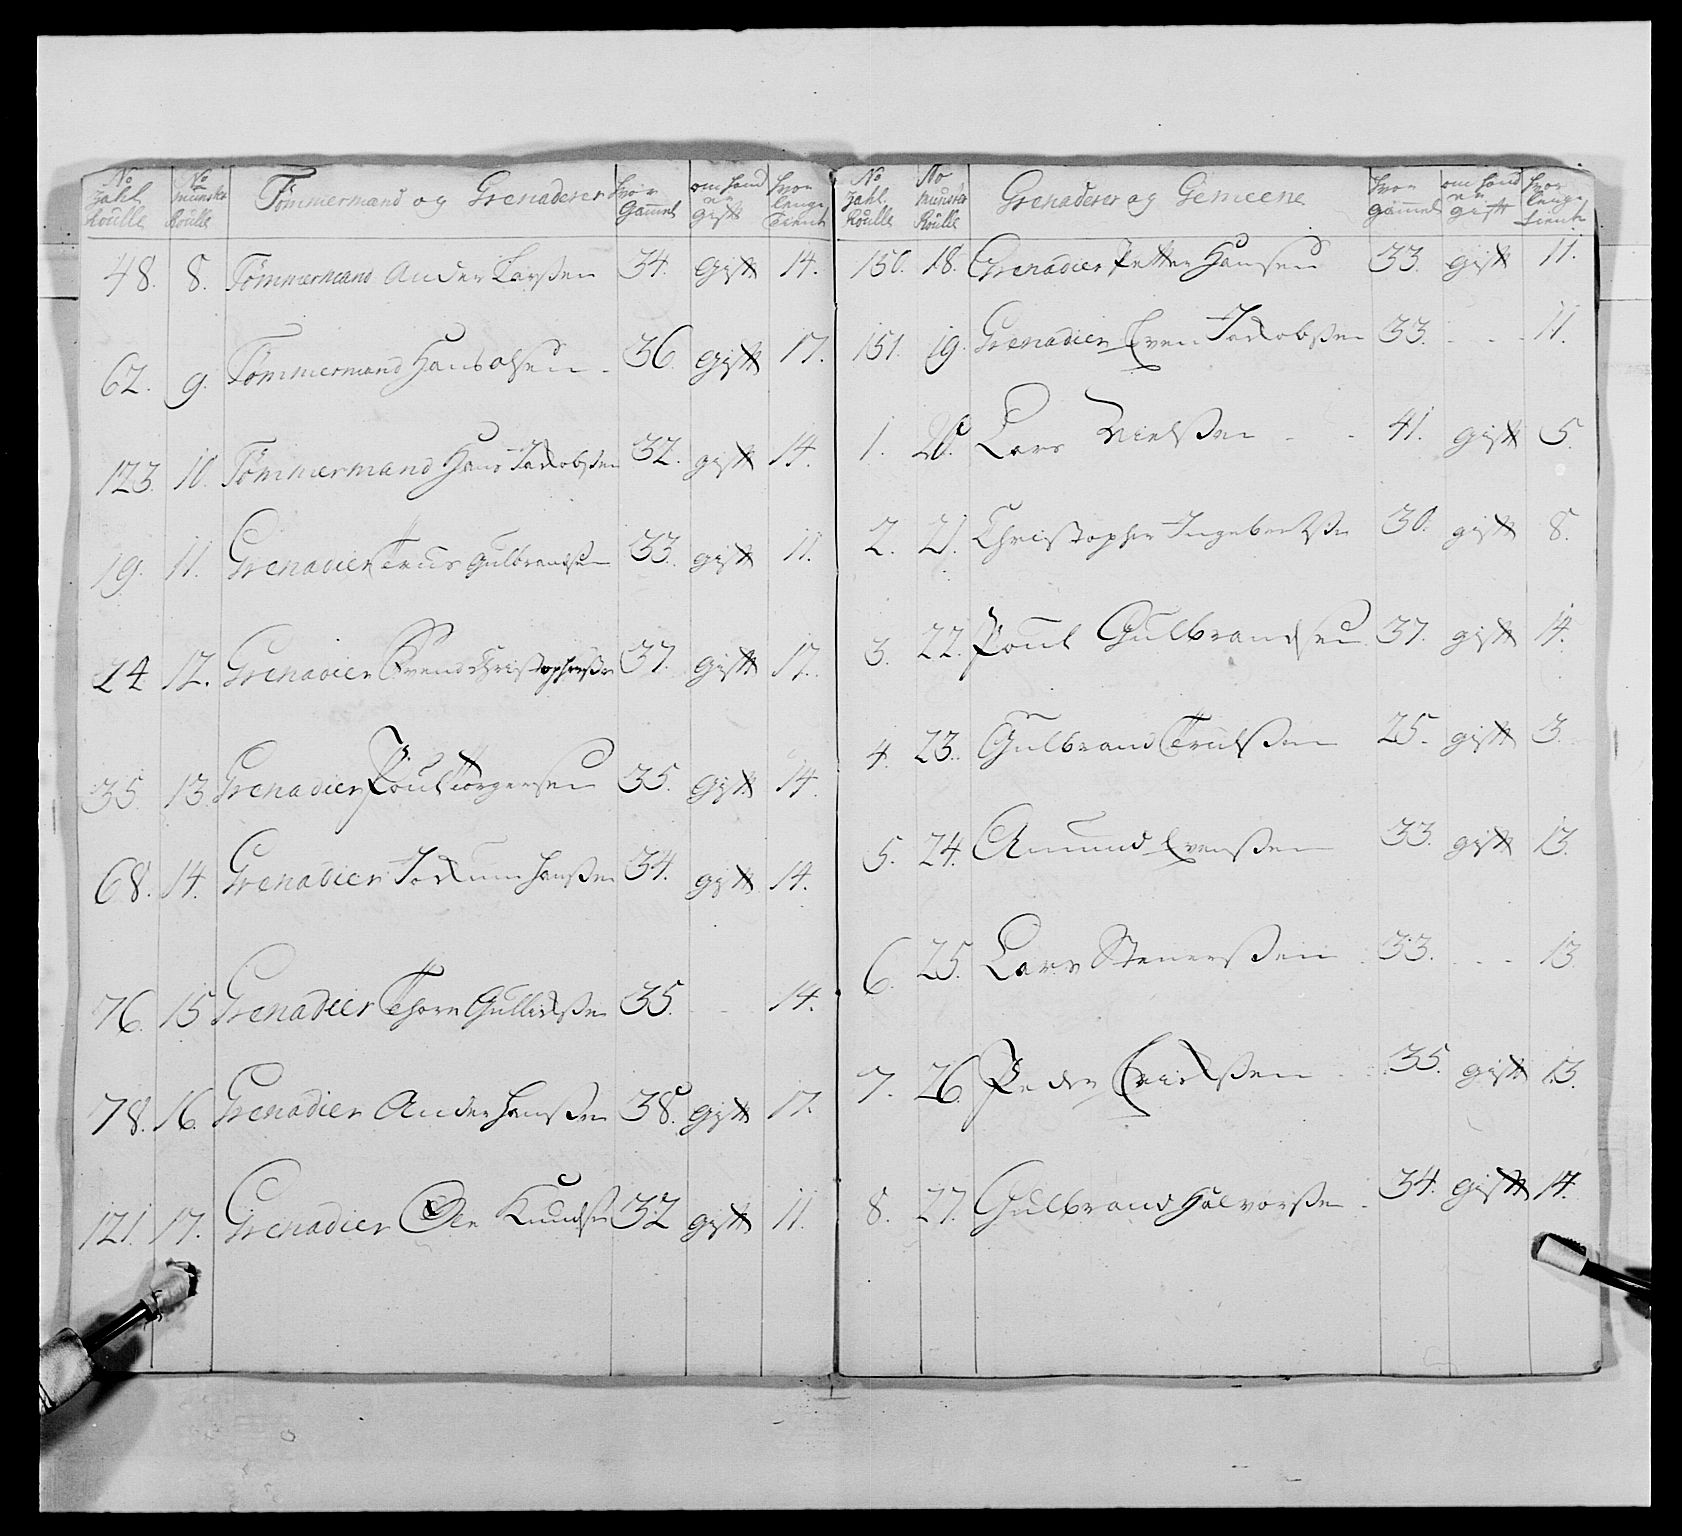 No Zahl Roulle No Munster Roulle Tømmermænd og Grenaderer hvor Gammel om hand er gift hvor lenge tient
48. 8. Tømmermand Ander Larssen 34. Gift 14.
62. 9. Tømmermand Hans Olsen 36 Gift 17.
123. 10. Tømmermand Hans Jacobsen 32. gift 14.
19. 11. Grenadier Truls Gulbrandsen 33. gift 11.
24 12. Grenadier Svend Christophersen 37. Gift 17.
35. 13 Grenadier Poul Torgersen 35. Gift 14.
68. 14. Grenadier Jockum Hanssen 34. gift 14.
76. 15 Grenadier Thore Gullickssen 35. - - 14.
78. 16. Grenadier Ander Hanssen 38. gift 17.
121. 17. Grenadier Ole Knudsen 32 gift 11.
No Zahl Roulle No Munster Roulle Grenaderer og Gemeene hvor gammel om hand er gift hvor lenge tient
150. 18. Grenadier Petter Hansen 33. gift 11.
151. 19. Grenadier Even Jacobsen 33. - - 11.
1. 20. Lars Nielssen - - 41. gift 5.
2. 21. Christopher Ingebretzen 30. gift 8.
3. 22. Poul Gulbrandsen 37. gift 14.
4. 23. Gulbrand Trulssen 25. gift 3.
5. 24. Amund Evenssen 33. gift 13.
6. 25. Lars Stenerssen 33. - - 13
7. 26 Peder Erickssen 35. gift 13.
8. 27. Gulbrand Halvorssen 34. gift 14.